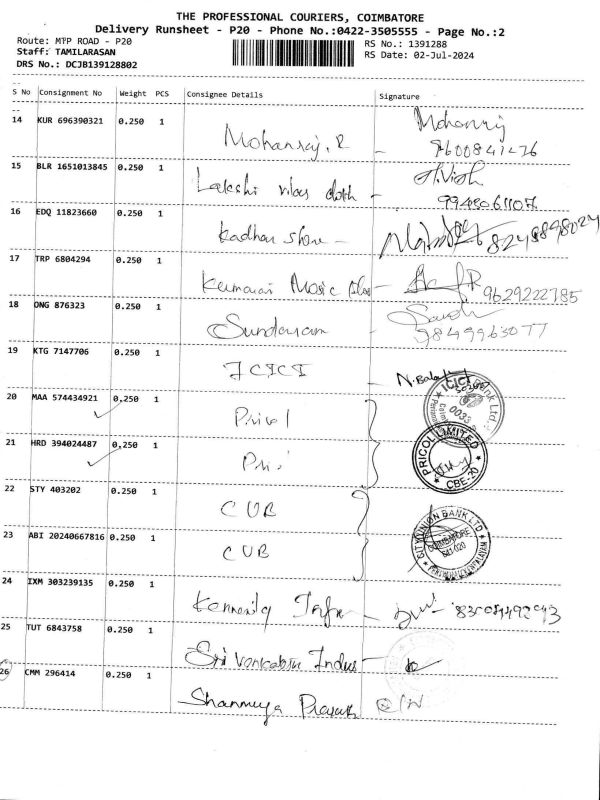 THE PROFESSIONAL COURIERS, COIMBATORE
Delivery Runsheet - P20 - Phone No.:0422-3505555 - Page No.:2
Route: MTP ROAD - P20
RS No.: 1391288
Staff: TAMILARASAN
RS Date: 02-Jul-2024
DRS No.: DCJB139128802
S No Consignment No Weight PCS Consignee Details Signature
14 KUR 696390321 0.250 1 Mohanraj, R - Mohanraj
9600841476
15 BLR 1651013845 0.250 1 Lakshi vilas - H.Vish
9948061107
16 EDQ 11823660 0.250 1 Kadhar -
17 TRP 6804294 0.250 1 Music - 9629222785
18 ONG 876323 0.250 1 Sundaram -
9849963077
19 KTG 7147706 0.250 1 ICICI -
ICICI Bank Ltd
0033
20 MAA 574434921 0.250 1 Pricol
PRICOL LIMITED
CBE-20
21 HRD 394024487 0.250 1
22 STY 403202 0.250 1 CUB
CITY UNION BANK LTD
COIMBATORE
641 020
23 ABI 20240667816 0.250 1 CUB
24 IXM 303239135 0.250 1 -
25 TUT 6843758 0.250 1 Sri Venkatesa Indus -
26 CMM 296414 0.250 1 Shanmuga